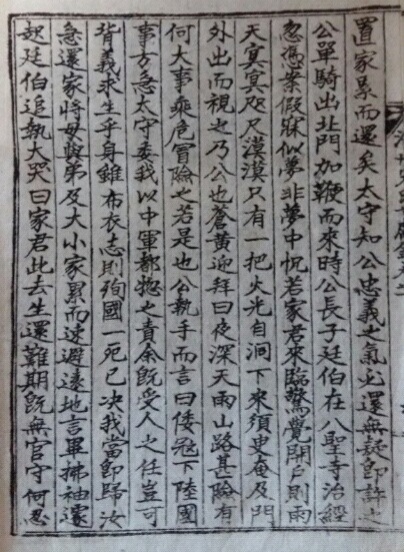 置家累而還矣太守知公忠義之氣必還無疑卽許之
公單騎出北門加鞭而來時公長子廷伯在八聖寺治經
忽憑案假寐似夢非夢中怳若家君來臨驚覺開戶則雨
天冥冥咫尺漠漠只有一把火光自洞下來須臾庵及門
外出而視之乃公也蒼黃迎拜曰夜深天雨山路甚險有
何大事乘危冒險之若是也公執手而言曰倭冦下陸國
事方急太守委我以中軍都摠之責余旣受人之任豈可
背義求生乎身雖布衣志則殉國一死已决我當卽歸汝
急還家將母與弟及大小家累而速避遠地言畢拂袖還
起廷伯追執大哭曰家君此去生還難期旣無官守何忍